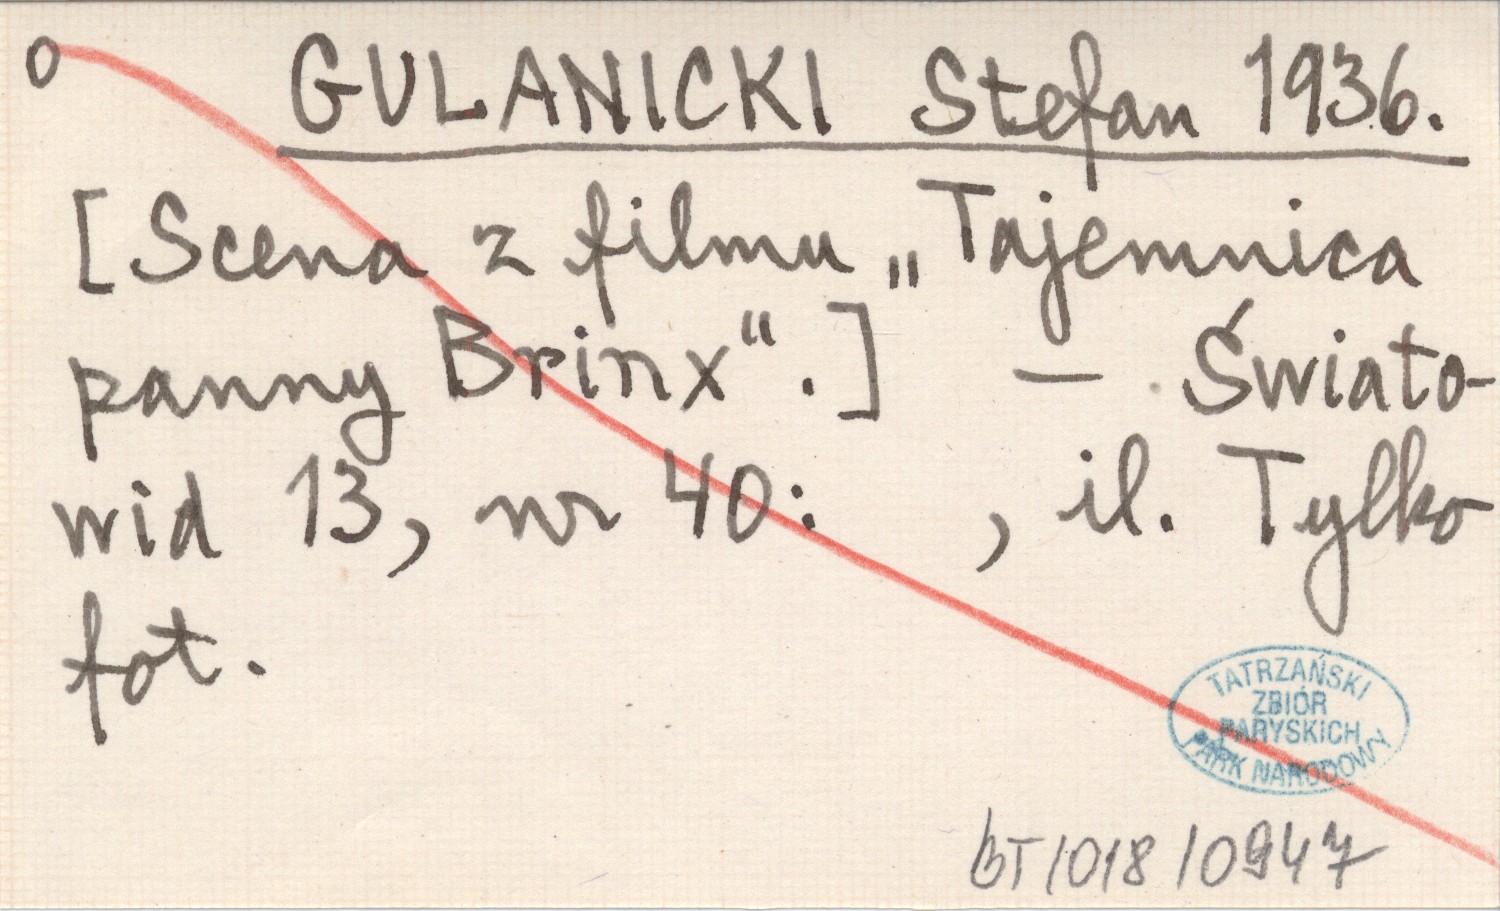 o GULANICKI Stefan 1936.
[Scena z filmu „Tajemnica
panny Brinx“.] – Świato-
wid 13, nr 40: , il. Tylko
fot.
TATRZAŃSKI
ZBIÓR
PARYSKICH
PARK NARODOWY
bT/018/0947